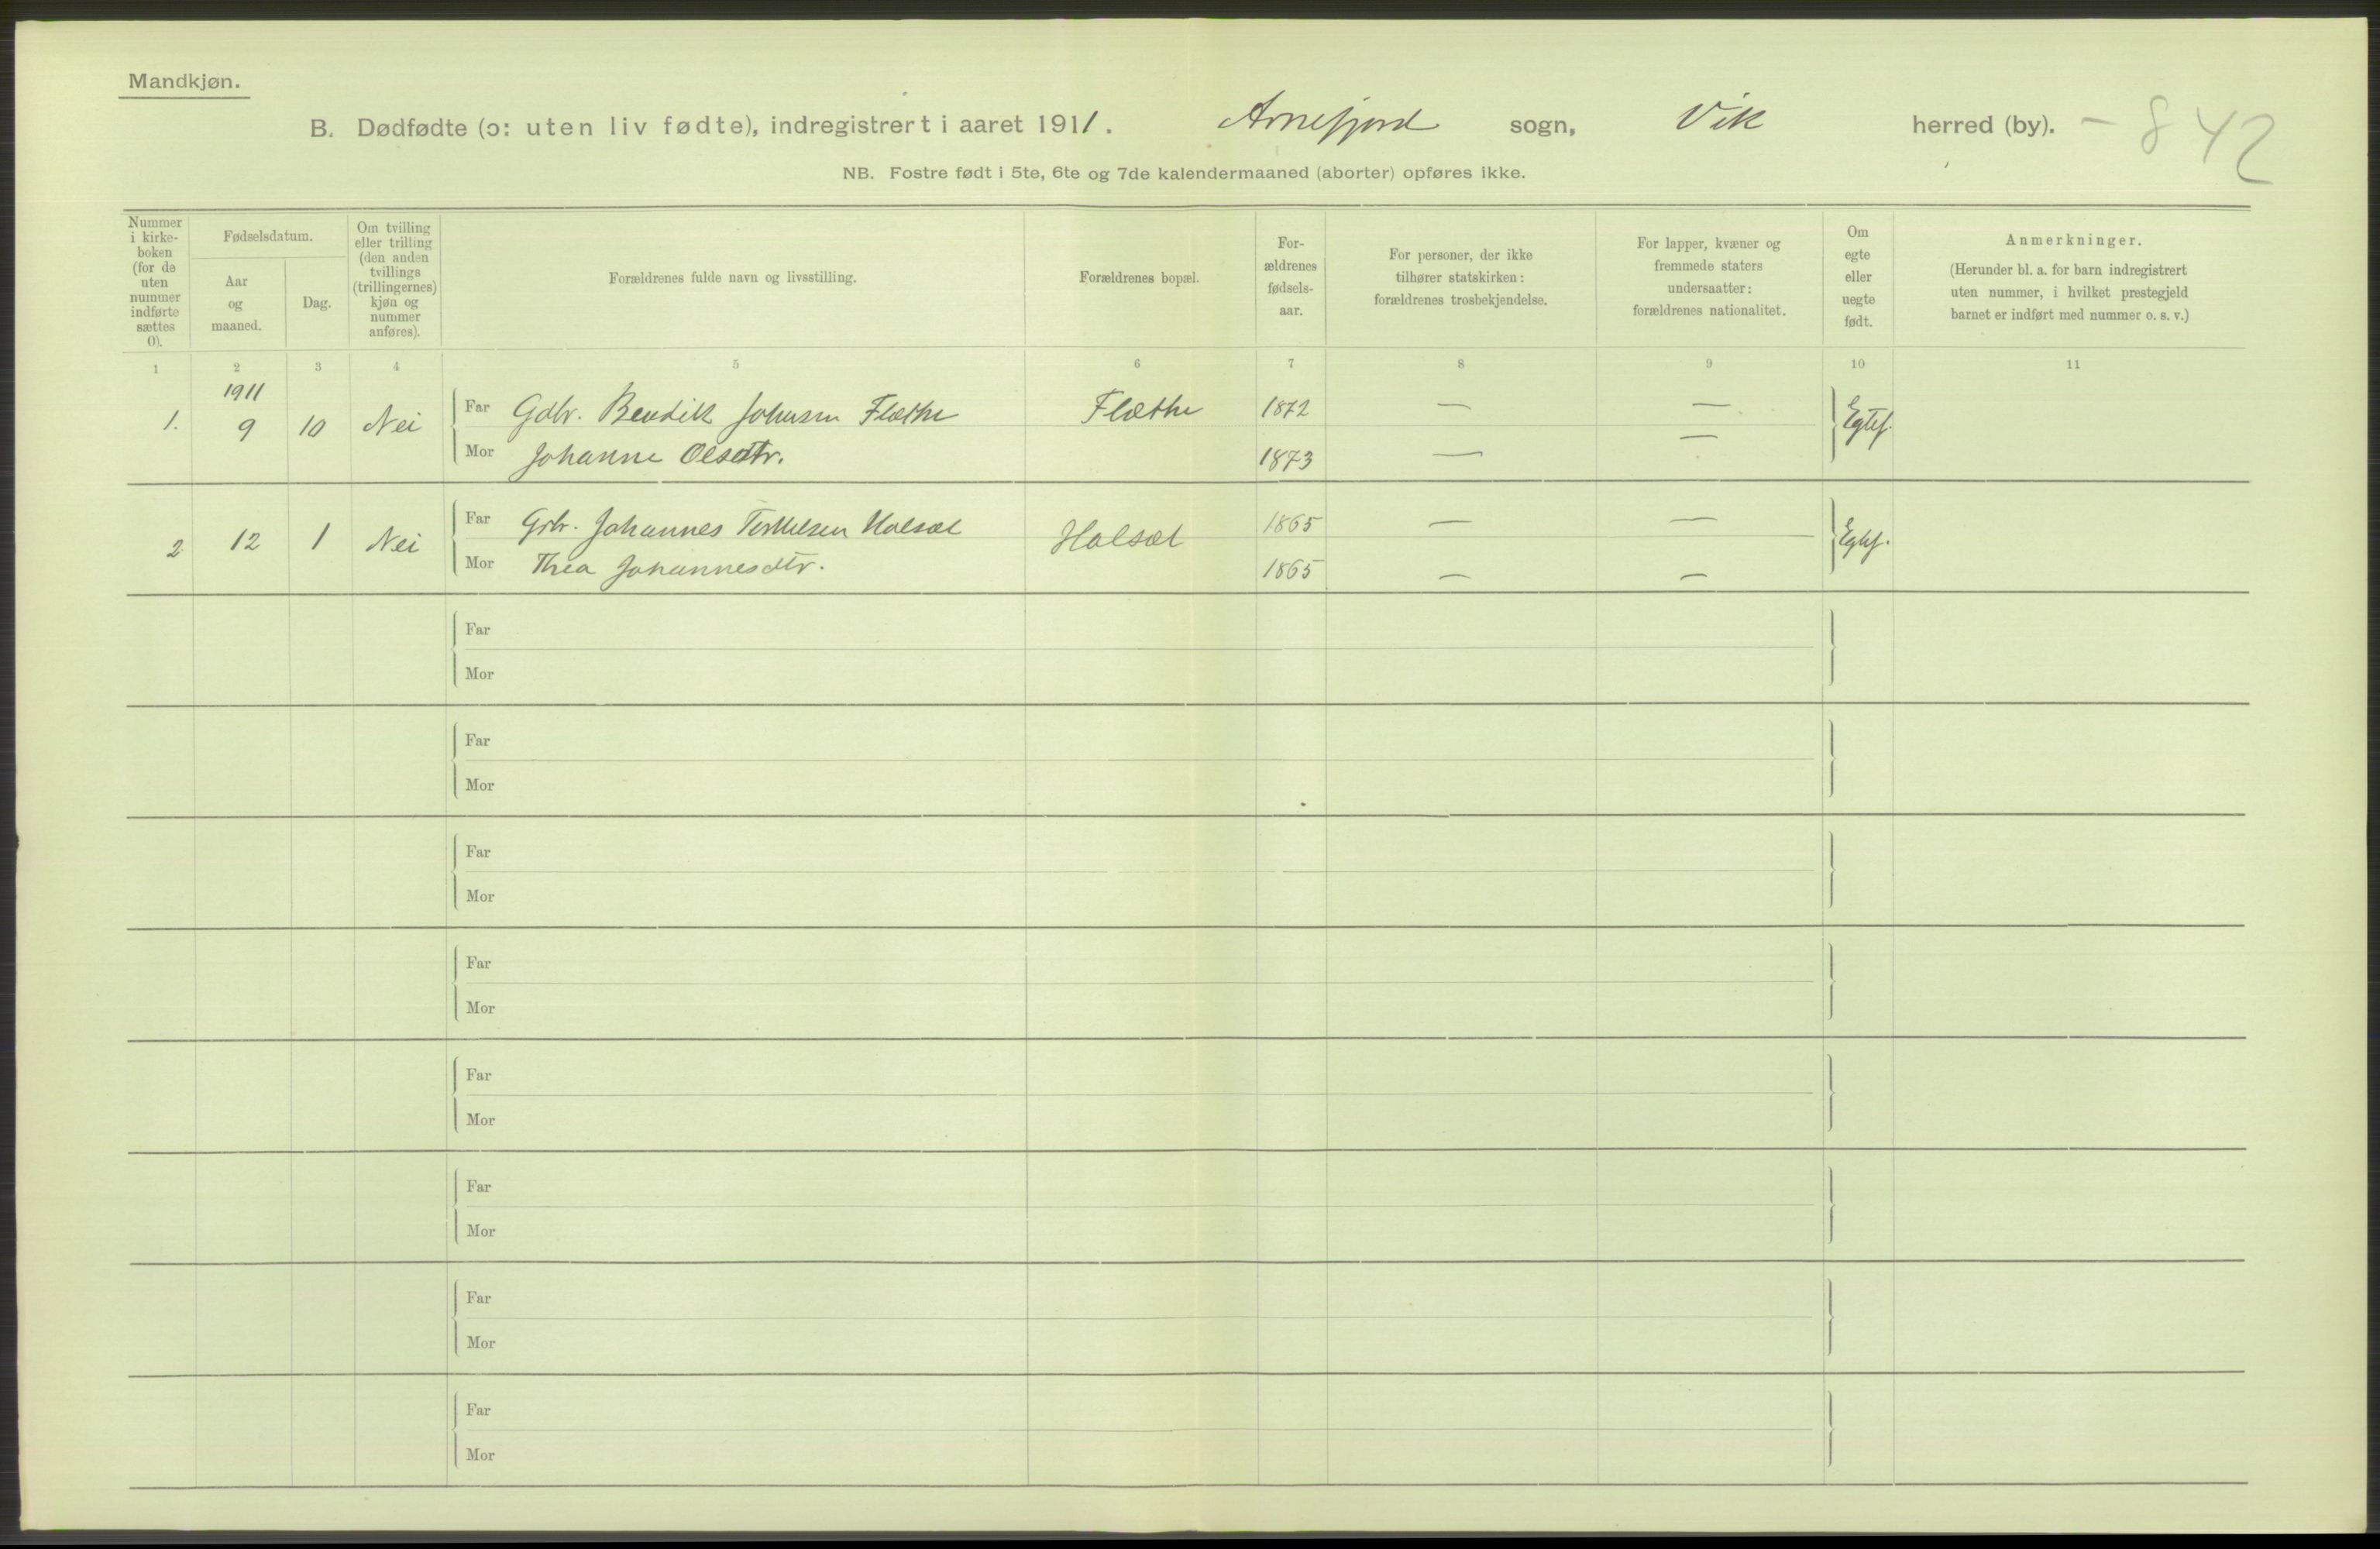 Mandkjøn.
B. Dødfødte (ɔ: uten liv fødte), indregistrert i aaret 1911. Arnefjord sogn, Vik herred (by). - 842
NB. Fostre født i 5te, 6te og 7de kalendermaaned (aborter) opføres ikke.
Nummer
i kirke-
boken
(for de
uten
nummer
indførte
sættes
0).
Fødselsdatum.
Aar
og
maaned.
Dag.
Om tvilling
eller trilling
(den anden
tvillings
(trillingernes)
kjøn og
nummer
anføres).
Forældrenes fulde navn og livsstilling.
Forældrenes bopæl.
For-
ældrenes
fødsels-
aar.
For personer, der ikke
tilhører statskirken:
forældrenes trosbekjendelse.
For lapper, kvæner og
fremmede staters
undersaatter:
forældrenes nationalitet.
Om
egte
eller
uegte
født.
Anmerkninger.
(Herunder bl. a. for barn indregistrert
uten nummer, i hvilket prestegjeld
barnet er indført med nummer o. s. v.)
1 2 3 4 5 6 7 8 9 10 11
1911
1. 9 10 Nei Far Gdbr. Bendik Johnsen Flæthe Flæthe 1872 — — Egtef.
Mor Johanne Olsdtr. 1873 — —
2 12 1 Nei Far Gbr. Johannes Torkelsen Halsæt Halsæt 1865 — — Egtef.
Mor Thea Johannesdtr. 1865 — —
Far
Mor
Far
Mor
Far
Mor
Far
Mor
Far
Mor
Far
Mor
Far
Mor
Far
Mor